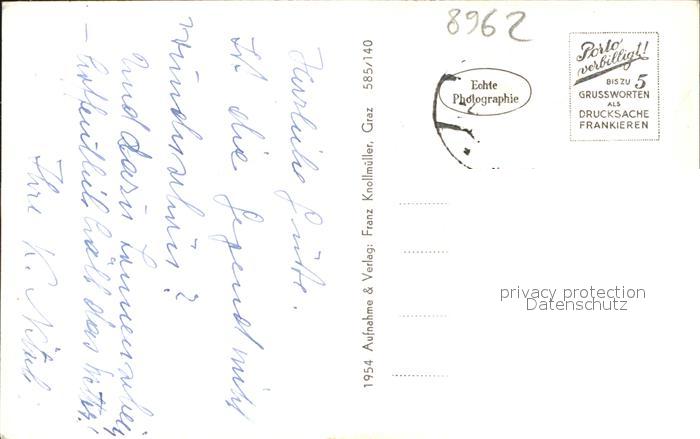 Herzliche Grüße.
Ist die Gegend nicht
wunderschön?
Und dazu Sonnenschein
– hoffentlich hält das Wetter!
Ihre K.
1954 Aufnahme & Verlag: Franz Knollmüller, Graz 585/140
8962
Echte
Photographie
Porto
verbilligt!
BIS ZU 5
GRUSSWORTEN
ALS
DRUCKSACHE
FRANKIEREN
privacy protection
Datenschutz